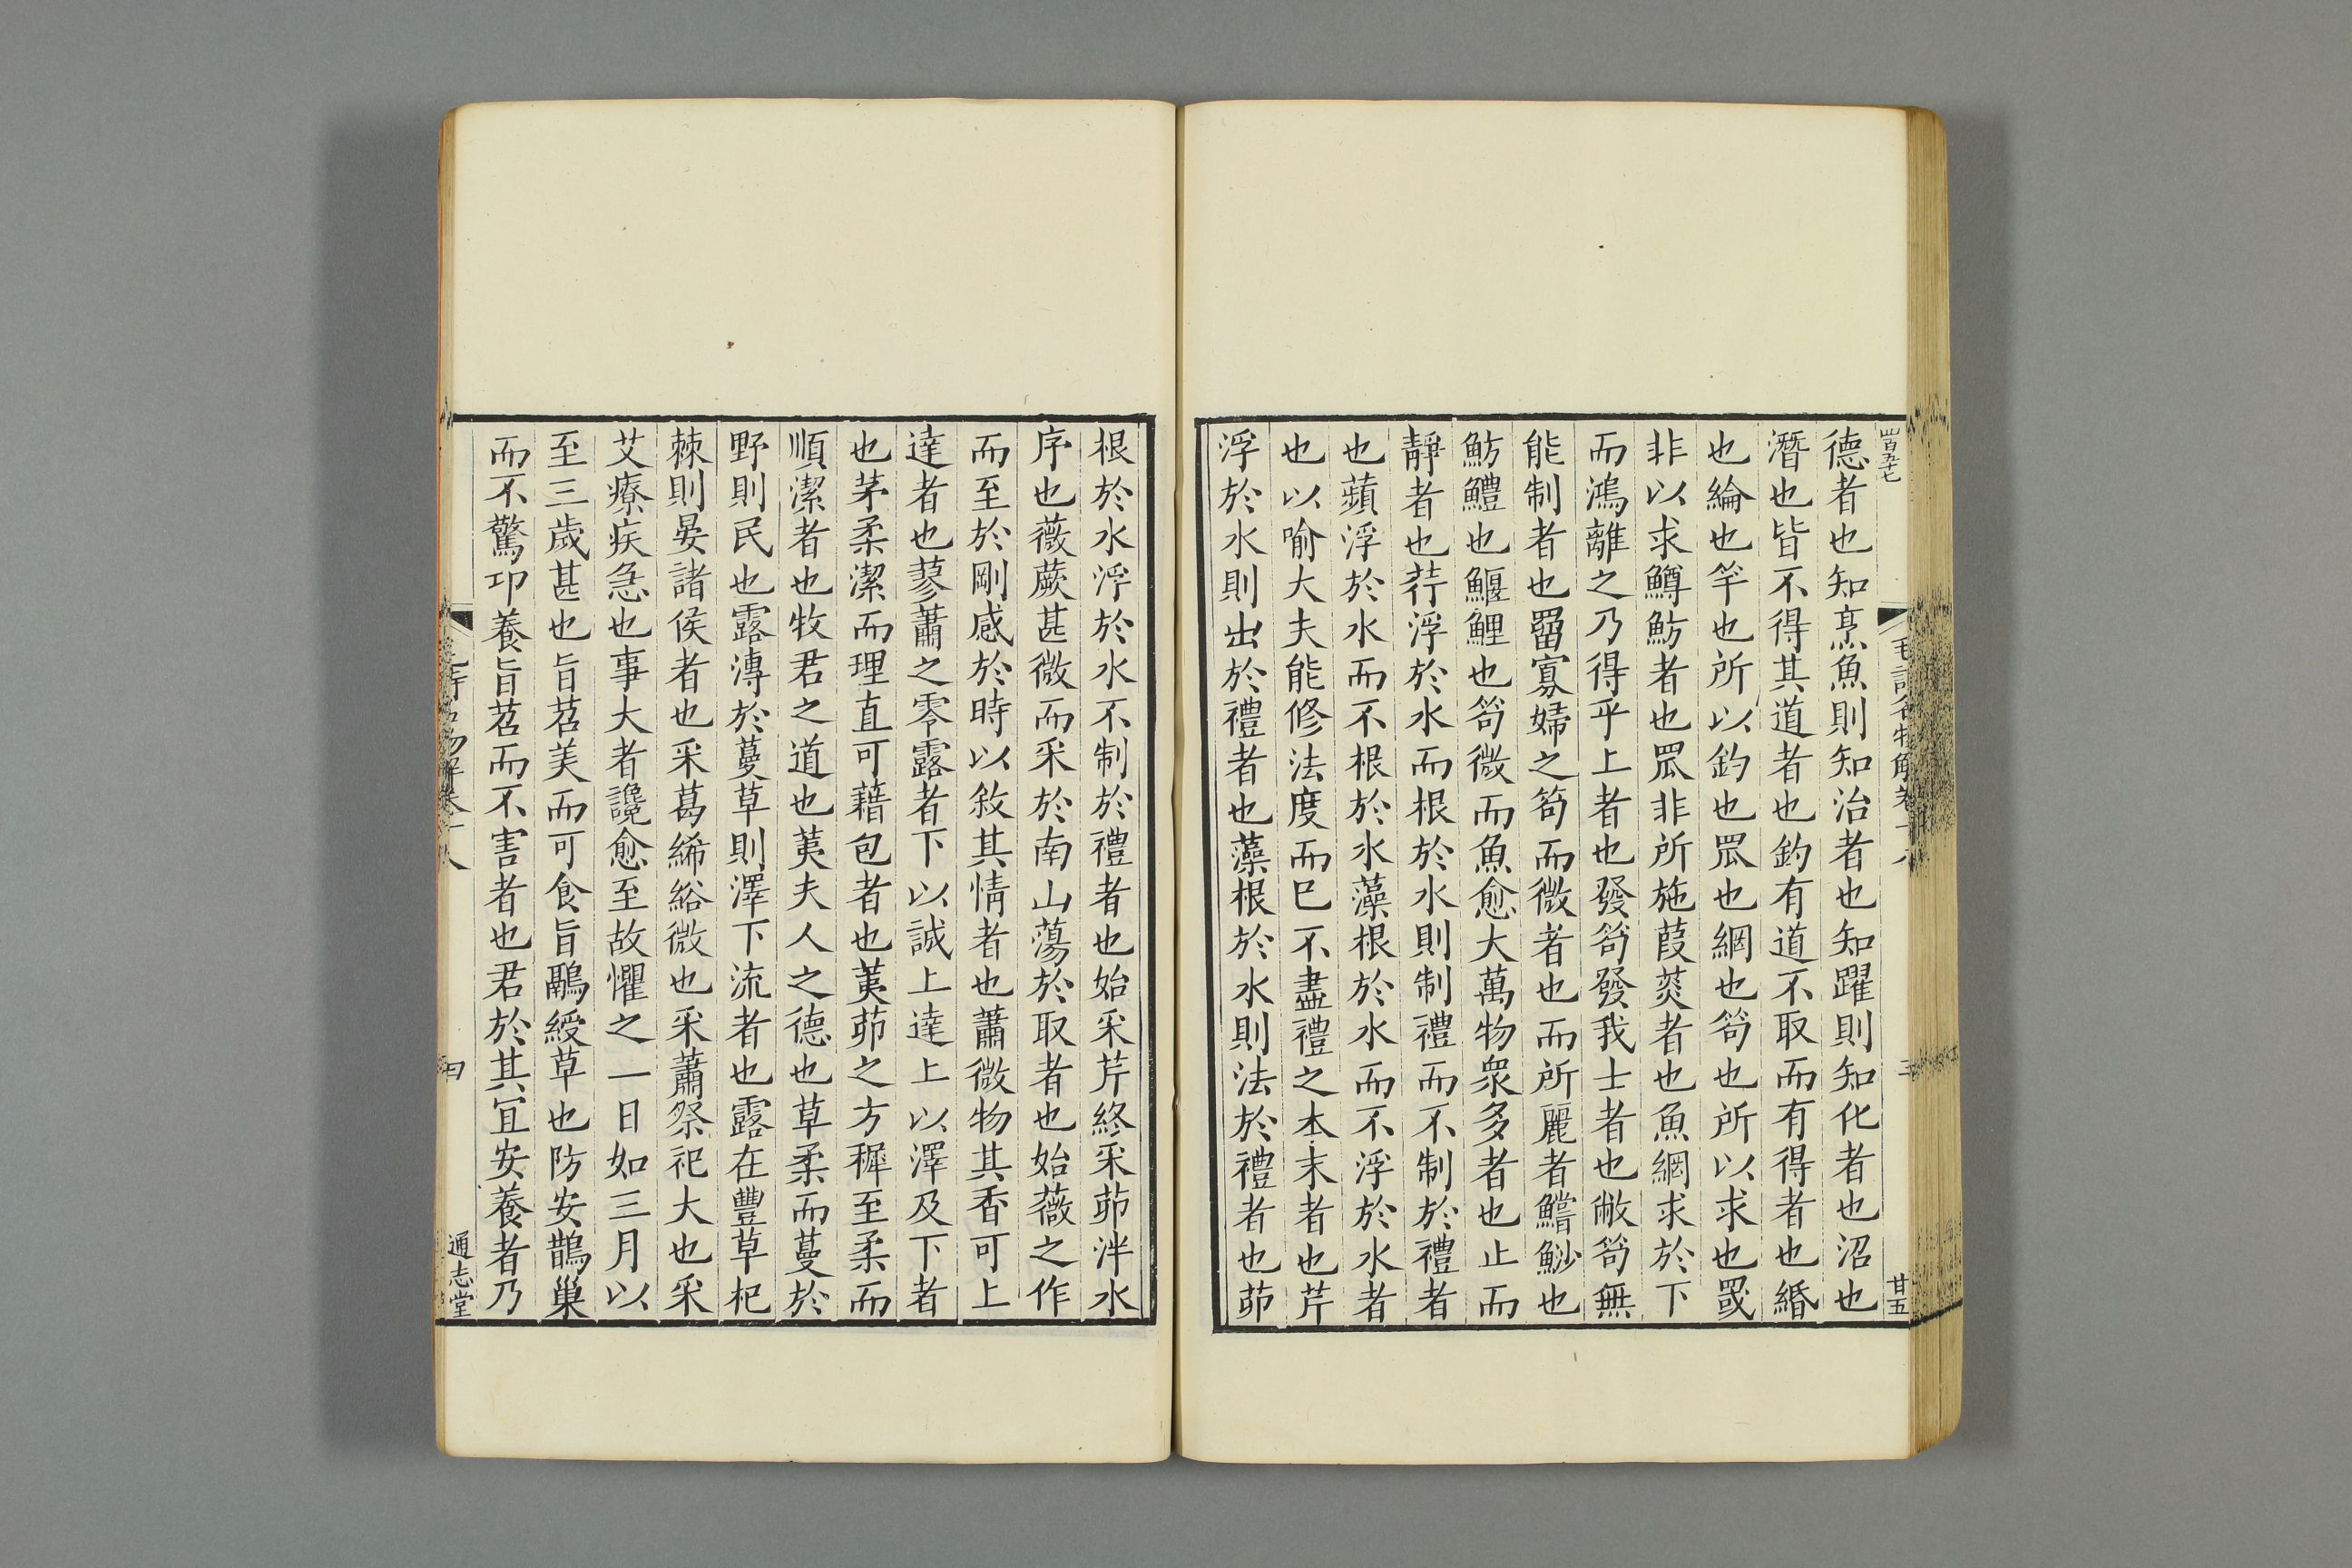 德者也知烹魚則知治者也知躍則知化者也沼也
潛也皆不得其道者也釣有道不取而有得者也緡
也綸也竿也所以釣也罛也網也笱也所以求也罭
非以求鱒魴者也罛非所施葭菼者也魚網求於下
而鴻離之乃得乎上者也發笱發我士者也敝笱無
能制者也罶寡婦之笱而微者也而所麗者鱨鯊也
魴鱧也鰋鯉也笱微而魚愈大萬物衆多者也止而
靜者也荇浮於水而根於水則制禮而不制於禮者
也蘋浮於水而不根於水藻根於水而不浮於水者
也以喻大夫能修法度而已不盡禮之本末者也芹
浮於水則出於禮者也藻根於水則法於禮者也茆
根於水浮於水不制於禮者也始采芹終采茆泮水
序也薇蕨甚微而采於南山蕩於取者也始薇之作
而至於剛感於時以敘其情者也蕭微物其香可上
達者也蓼蕭之零露者下以誠上達上以澤及下者
也茅柔潔而理直可藉包者也荑茆之方穉至柔而
順潔者也牧君之道也荑夫人之德也草柔而蔓於
野則民也露漙於蔓草則澤下流者也露在豐草杞
棘則晏諸侯者也采葛絺綌微也采蕭祭祀大也采
艾療疾急也事大者讒愈至故懼之一日如三月以
至三歲甚也旨苕美而可食旨鷊綬草也防安鵲巢
而不驚卭養旨苕而不害者也君於其宜安養者乃
通志堂